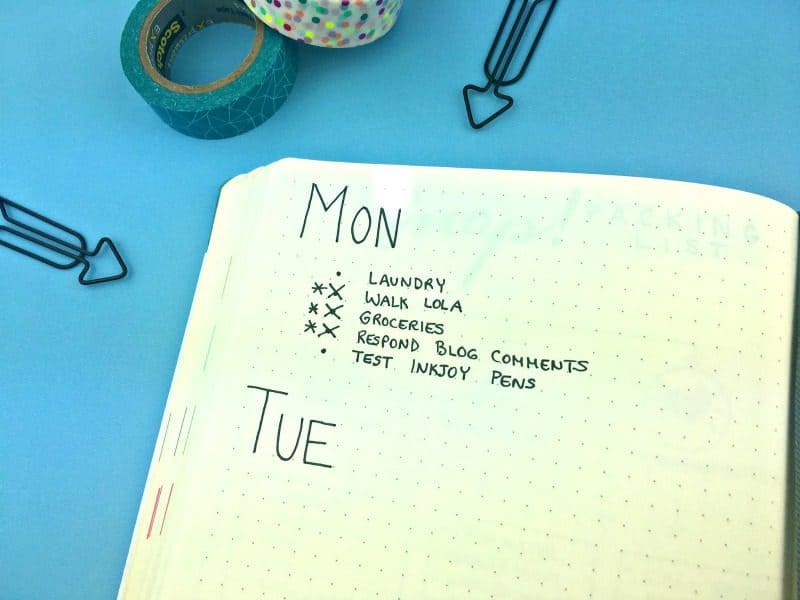 Scotch
EXPRESSIONS
PACKING
LIST
MON
• LAUNDRY
*X WALK LOLA
*X GROCERIES
*X RESPOND BLOG COMMENTS
• TEST INKJOY PENS
TUE